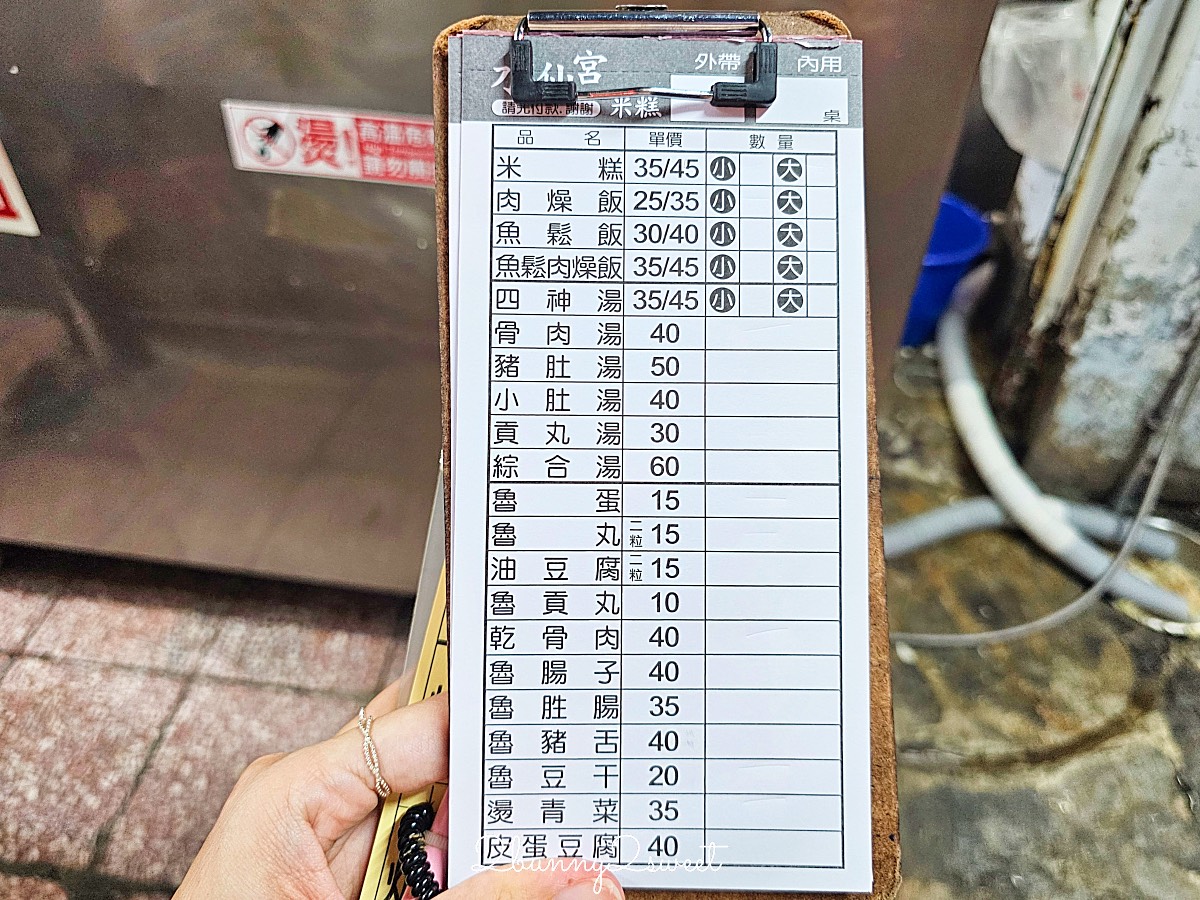 外帶 內用
仙宮
請先付款.謝謝 米糕 桌
品名 單價 數量
米糕 35/45 小 大
肉燥飯 25/35 小 大
魚鬆飯 30/40 小 大
魚鬆肉燥飯 35/45 小 大
四神湯 35/45 小 大
骨肉湯 40
豬肚湯 50
小肚湯 40
貢丸湯 30
綜合湯 60
魯蛋 15
魯丸 二粒 15
油豆腐 二粒 15
魯貢丸 10
乾骨肉 40
魯腸子 40
魯胜腸 35
魯豬舌 40
魯豆干 20
燙青菜 35
皮蛋豆腐 40
2bunny2sweet
燙!